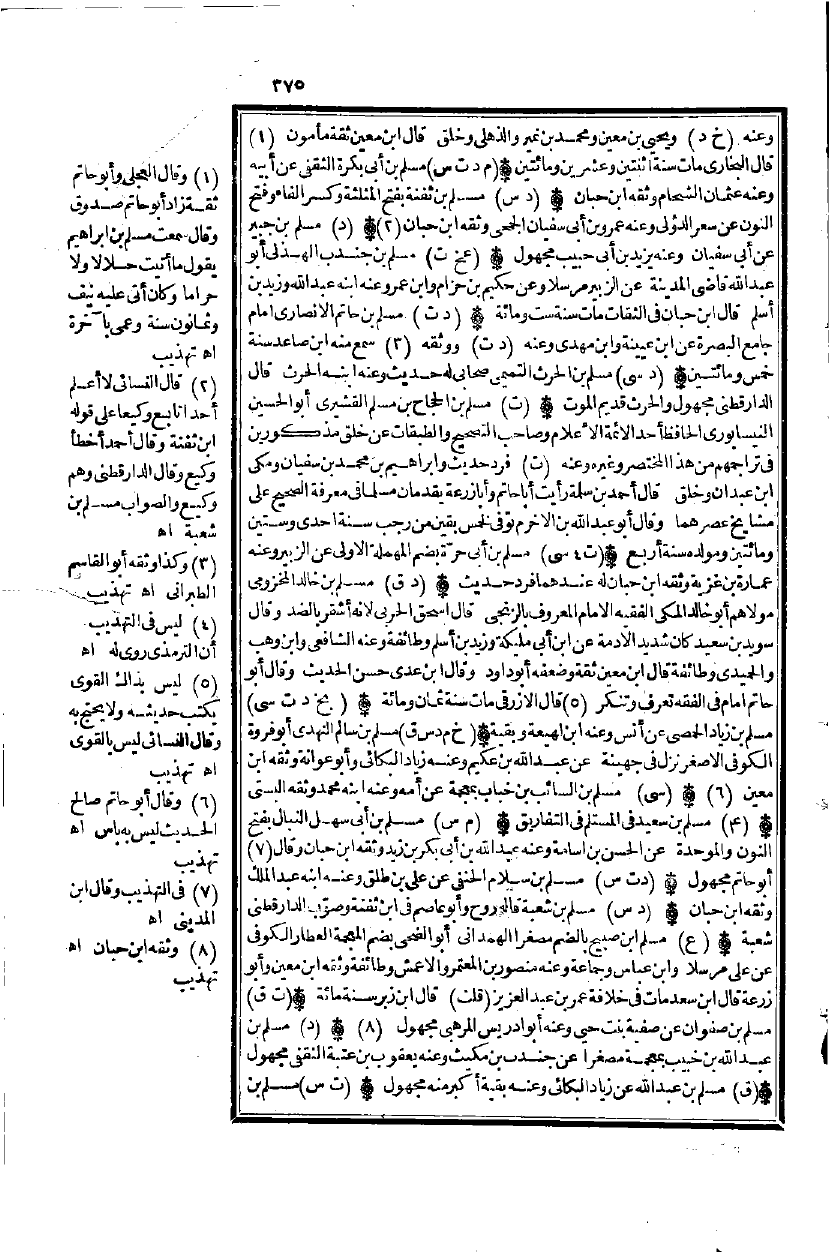 ٣٧٥
وعنه (خ د) ويحيى بن معين ومحمد بن نمير والذهلي وخلق قال ابن معين ثقة مأمون (١)
قال البخارى مات سنة اثنتين وعشرين ومائتين (م د ت س) مسلم بن أبى بكرة الثقفى عن أبيه
وعنه عثمان الشحام وثقه ابن حبان (د س) مسلم بن ثفنة بفتح المثلثة وكسر الفاء وفتح
النون عن سعر الدؤلى وعنه عمرو بن أبى سفيان الجمحى وثقه ابن حبان (٢) (د) مسلم بن جبير
عن أبى سفيان وعنه يزيد بن أبى حبيب مجهول (عخ ت) مسلم بن جندب الهذلى أبو
عبد الله قاضى المدينة عن الزبير مرسلا وعن حكيم بن حزام وابن عمر وعنه ابنه عبد الله وزيد بن
أسلم قال ابن حبان فى الثقات مات سنة ست ومائة (د ت) مسلم بن حاتم الانصارى امام
جامع البصرة عن ابن عيينة وابن مهدى وعنه (د ت) ووثقه (٣) سمع منه ابن صاعد سنة
خمس ومائتين (د سى) مسلم بن الحرث التميمى صحابى له حديث وعنه ابنه الحرث قال
الدارقطنى مجهول والحرث قديم الموت (ت) مسلم بن الحجاج بن مسلم القشيرى أبو الحسين
النيسابورى الحافظ أحد الائمة الاعلام وصاحب الصحيح والطبقات عن خلق مذكورين
فى تراجمهم من هذا المختصر وغيره وعنه (ت) فرد حديث وابراهيم بن محمد بن سفيان ومكى
ابن عبدان وخلق قال أحمد بن سلمة رأيت أبا حاتم وأبا زرعة يقدمان مسلما فى معرفة الصحيح على
مشايخ عصرهما وقال أبو عبد الله بن الاخرم توفى لخمس بقين من رجب سنة احدى وستين
ومائتين ومولده سنة أربع (ت٤ سى) مسلم بن أبى حرة بضم المهملة الاولى عن الزبير وعنه
عمارة بن غزية وثقه ابن حبان له عندهما فرد حديث (د ق) مسلم بن خالد المخزومى
مولاهم أبو خالد المكى الفقيه الامام المعروف بالزنجى قال اسحق الحربى لانه أشقر بالضد وقال
سويد بن سعيد كان شديد الادمة عن ابن أبى مليكة وزيد بن أسلم وطائفة وعنه الشافعى وابن وهب
والحميدى وطائفة قال ابن معين ثقة وضعفه أبو داود وقال ابن عدى حسن الحديث وقال أبو
حاتم امام فى الفقه تعرف وتنكر (٥) قال الازرقى مات سنة ثمان ومائة (بخ د ت سى)
مسلم بن زياد الحمصى عن أنس وعنه ابن لهيعة وبقية (خ م د س ق) مسلم بن سالم النهدى أبو فروة
الكوفى الاصغر نزل فى جهينة عن عبد الله بن عكيم وعنه زياد البكائى وأبو عوانة وثقه ابن
معين (٦) (سى) مسلم بن السائب بن خباب بمعجمة عن أمه وعنه ابنه محمد وثقه البستى
(٤) مسلم بن سعيد فى المستلم فى التفاريق (م س) مسلم بن أبى سهل النبال بفتح
النون والموحدة عن الحسن بن اسامة وعنه عبد الله بن أبى بكر بن زيد وثقه ابن حبان وقال (٧)
أبو حاتم مجهول (د ت س) مسلم بن سلام الحنفى عن على بن طلق وعنه ابنه عبد الملك
وثقه ابن حبان (د س) مسلم بن شعبة قاله روح وأبو عاصم فى ابن ثفنة وصوّبه الدارقطنى
شعبة (ع) مسلم ابن صبيح بالضم مصغرا الهمدانى أبو الضحى بضم المعجمة العطار الكوفى
عن على مرسلا وابن عباس وجماعة وعنه منصور بن المعتمر والاعمش وطائفة وثقه ابن معين وأبو
زرعة قال ابن سعد مات فى خلافة عمر بن عبد العزيز (قلت) قال ابن زبر سنة مائة (ت ق)
مسلم بن صفوان عن صفية بنت حيى وعنه أبو ادريس المرهبى مجهول (٨) (د) مسلم بن
عبد الله بن خبيب بمعجمة مصغرا عن جندب بن مكيث وعنه يعقوب بن عتبة الثقفى مجهول
(ق) مسلم بن عبد الله عن زياد البكائى وعنه بقية أكبر منه مجهول (ت س) مسلم بن
(١) وقال العجلى وأبو حاتم
ثقة زاد أبو حاتم صدوق
وقال سمعت مسلم بن ابراهيم
يقول ما أتيت حلالا ولا
حراما وكان أتى عليه نيف
وثمانون سنة وعمى بآخرة
اه تهذيب
(٢) قال النسائى لا أعلم
أحدا تابع وكيعا على قوله
ابن ثفنة وقال أحمد أخطأ
وكيع وقال الدارقطنى وهم
وكيع والصواب مسلم بن
شعبة اه
(٣) وكذا وثقه أبو القاسم
الطبرانى اه تهذيب
(٤) ليس فى التهذيب
أن الترمذى روى له اه
(٥) ليس بذاك القوى
يكتب حديثه ولا يحتج به
وقال النسائى ليس بالقوى
اه تهذيب
(٦) وقال أبو حاتم صالح
الحديث ليس به باس اه
تهذيب
(٧) فى التهذيب وقال ابن
المدينى اه
(٨) وثقه ابن حبان اه
تهذيب